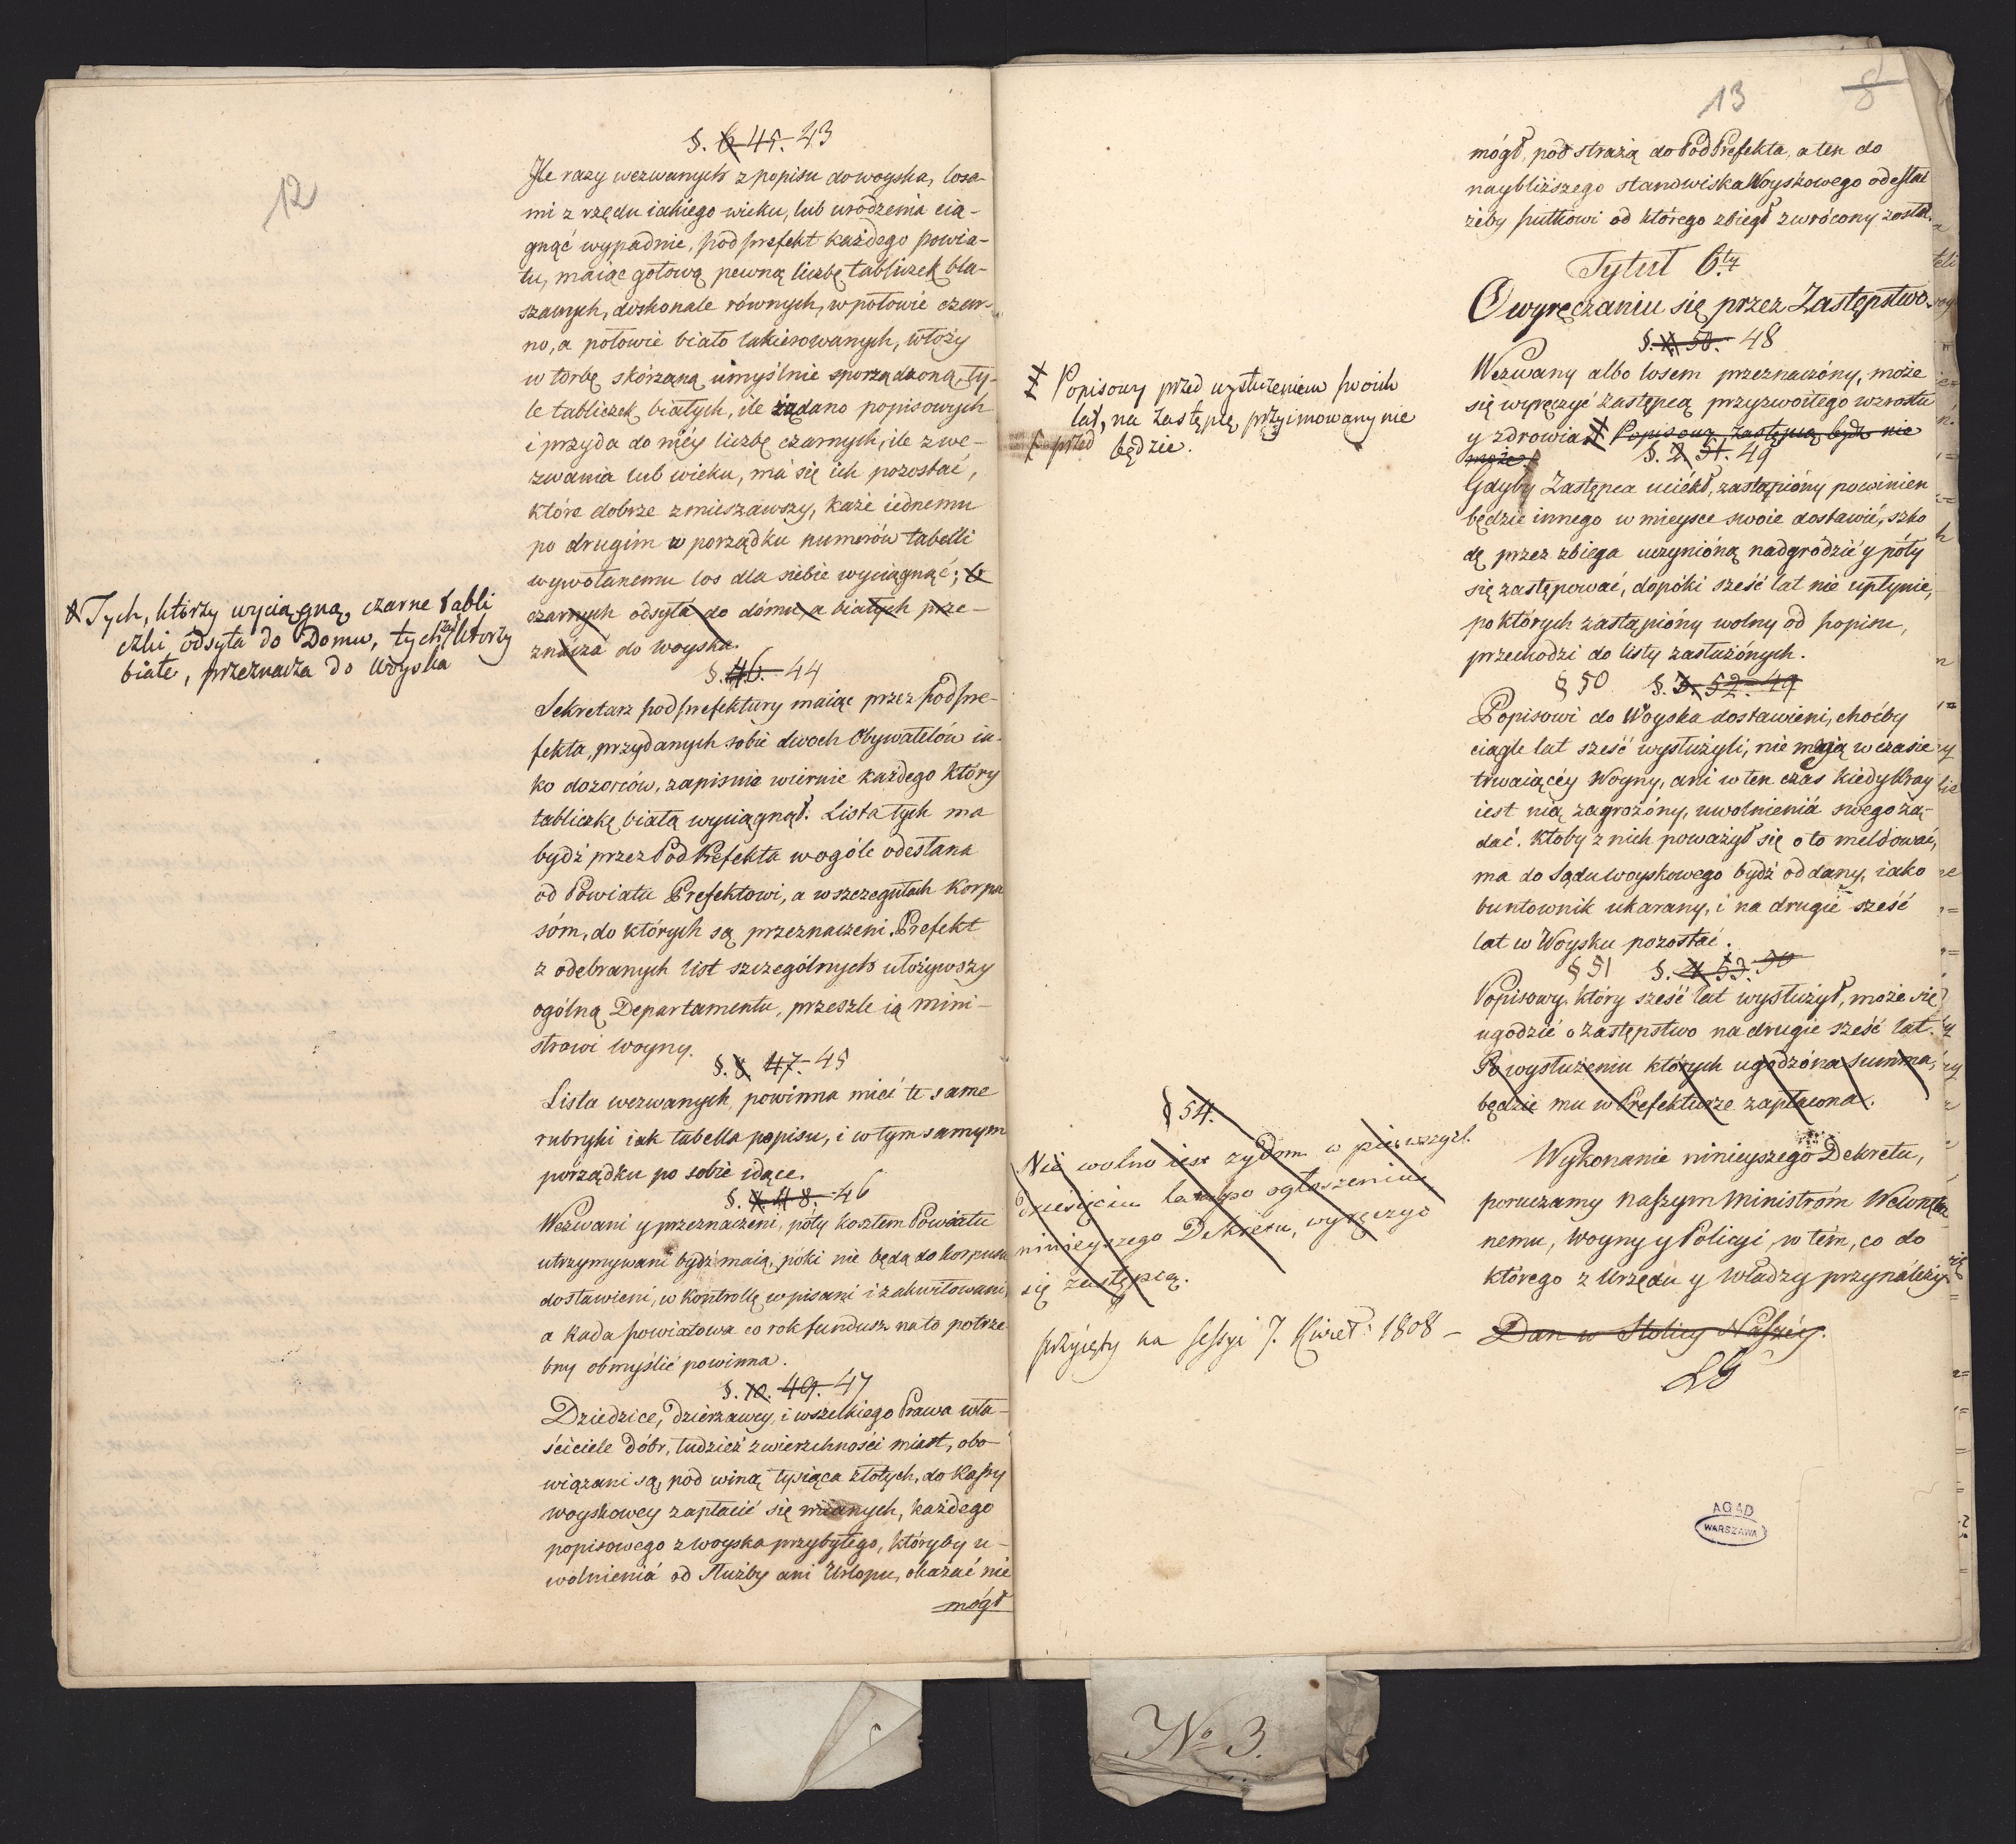 12
§. 6 45. 43
Ile razy wezwanych z popisu do woyska, losa-
mi z rzędu iakiego wieku, lub urodzenia cią-
gnąć wypadnie, podprefekt każdego powia-
tu, maiąc gotową pewną liczbę tabliczek bla-
szanych, doskonale równych, w połowie czar-
no, a połowie biało lakierowanych, włoży
w torbę skórzaną umyślnie sporządzoną, ty-
le tabliczek białych, ile żądano popisowych
i przyda do niéy liczbę czarnych, ile z we-
zwania lub wieku, má się ich pozostać,
które dobrze zmieszawszy, każe iednemu
po drugim w porządku numerów tabelli
wywołanemu los dla siebie wyciągnąć;
czarnych odsyłá do dómu, a białych prze-
znáczá do woyska.
Tych, którzy wyciągną czarne tabli
czki, odsyła do Domu, tych zaś którzy
białe, przeznacza do woyska
§. 46. 44
Sekretarz podprefektury maiąc przez podpre-
fekta, przydanych sobie dwoch Obywatelów ia-
ko dozorców, zapisuie wiernie każdego który
tabliczkę białą wyciągnął. Lista tych ma
bydź przez PodPrefekta w ogóle odesłana
od Powiatu Prefektowi, a w szczegułach Korpu
sóm, do których są przeznaczeni. Prefekt
z odebranych list szczególnych ułożywszy
ogólną Departamentu, przeszle ią mini-
strowi woyny.
§. 8. 47. 45
Lista wezwanych, powinna mieć te same
rubryki iak tabella popisu, i w tym samym
porządku po sobie idące.
§. 48. 46
Wezwani y przeznaczeni, póty kosztem Powiatu
utrzymywani bydź maią, póki nie będą do korpusu
dostawieni, w Kontrollę wpisani i zakwitowani,
a Rada powiatowa co rok fundusz na to potrze
bny obmyślić powinna.
§. 10. 49. 47
Dziedzice, dzierzawcy, i wszelkiego Prawa wła-
ściciele dóbr, tudzież zwierzchności miast, obo-
wiązani są, pod winą tysiąca złotych, do Kassy
woyskowey zapłacić się mianych, każdego
popisowego z woyska przybyłego, któryby u-
wolnieniá od służby ani Urlopu, okazać nie
mógł
13
8
mógł, pod strażą do PodPrefekta, a ten do
naybliższego stanowiska Woyskowego odesłać
żeby pułkowi od którego zbiegł zwrócony został.
Tytuł 6.ty
O wyręczaniu się przez Zastępstwo.
§. 50. 48
Wezwany albo losem przeznaczóny, może
się wyręczyć zastępcą przyzwoitego wzrostu
y zdrowia. Popisowy Zastępcą bydź nie
może.
Popisowy przed wysłużeniem swoich
lat, na Zastępcę przyimowany nie
będzie.
§. 2. 51. 49
Gdyby Zastępca uciekł, zastąpióny powinien
będzie innego w mieysce swoie dostawić, szko
dę przez zbiega uczynióną nadgródzić y póty
się zastępować, dopóki sześć lat nie upłynie,
po których zastąpióny wolny od popisu,
przechodzi do listy zasłużónych.
§ 50 §. 3. 52. 49
Popisowi do Woyska dostawieni, choćby
ciągle lat sześć wysłużyli, nie mają w czasie
trwaiącéy Woyny, ani w ten czas kiedy Kray
iest nią zagrożóny, uwolnieniá swego żą-
dać. Ktoby z nich poważył się o to meldować,
ma do Sądu woyskowego bydź oddany, iako
buntownik ukarany, i na drugie sześć
lat w Woysku pozostać.
§ 51 §. 4. 53. 50
Popisowy, który sześć lat wysłużył, może się
ugodzić o zastępstwo na drugie sześć lat.
Po wysłużeniu których ugodzóna summa,
będzie mu w Prefekturze zapłacona.
§ 54.
Nie wolno iest zydom w pierwszych
dziesięciu latach po ogłoszeniu
ninieyszego Dekretu, wyręczyć
się zastępcą.
Wykonanie ninieyszego Dekretu,
poruczamy naszym Ministróm Wewnętrz
nemu, Woyny y Policyi, w tém, co do
którego z Urzędu y Władzy przynależy
przyięty na sessyi 7. Kwiet. 1808 – Dan w Stolicy Naszéy.
AGAD
WARSZAWA
No 3.